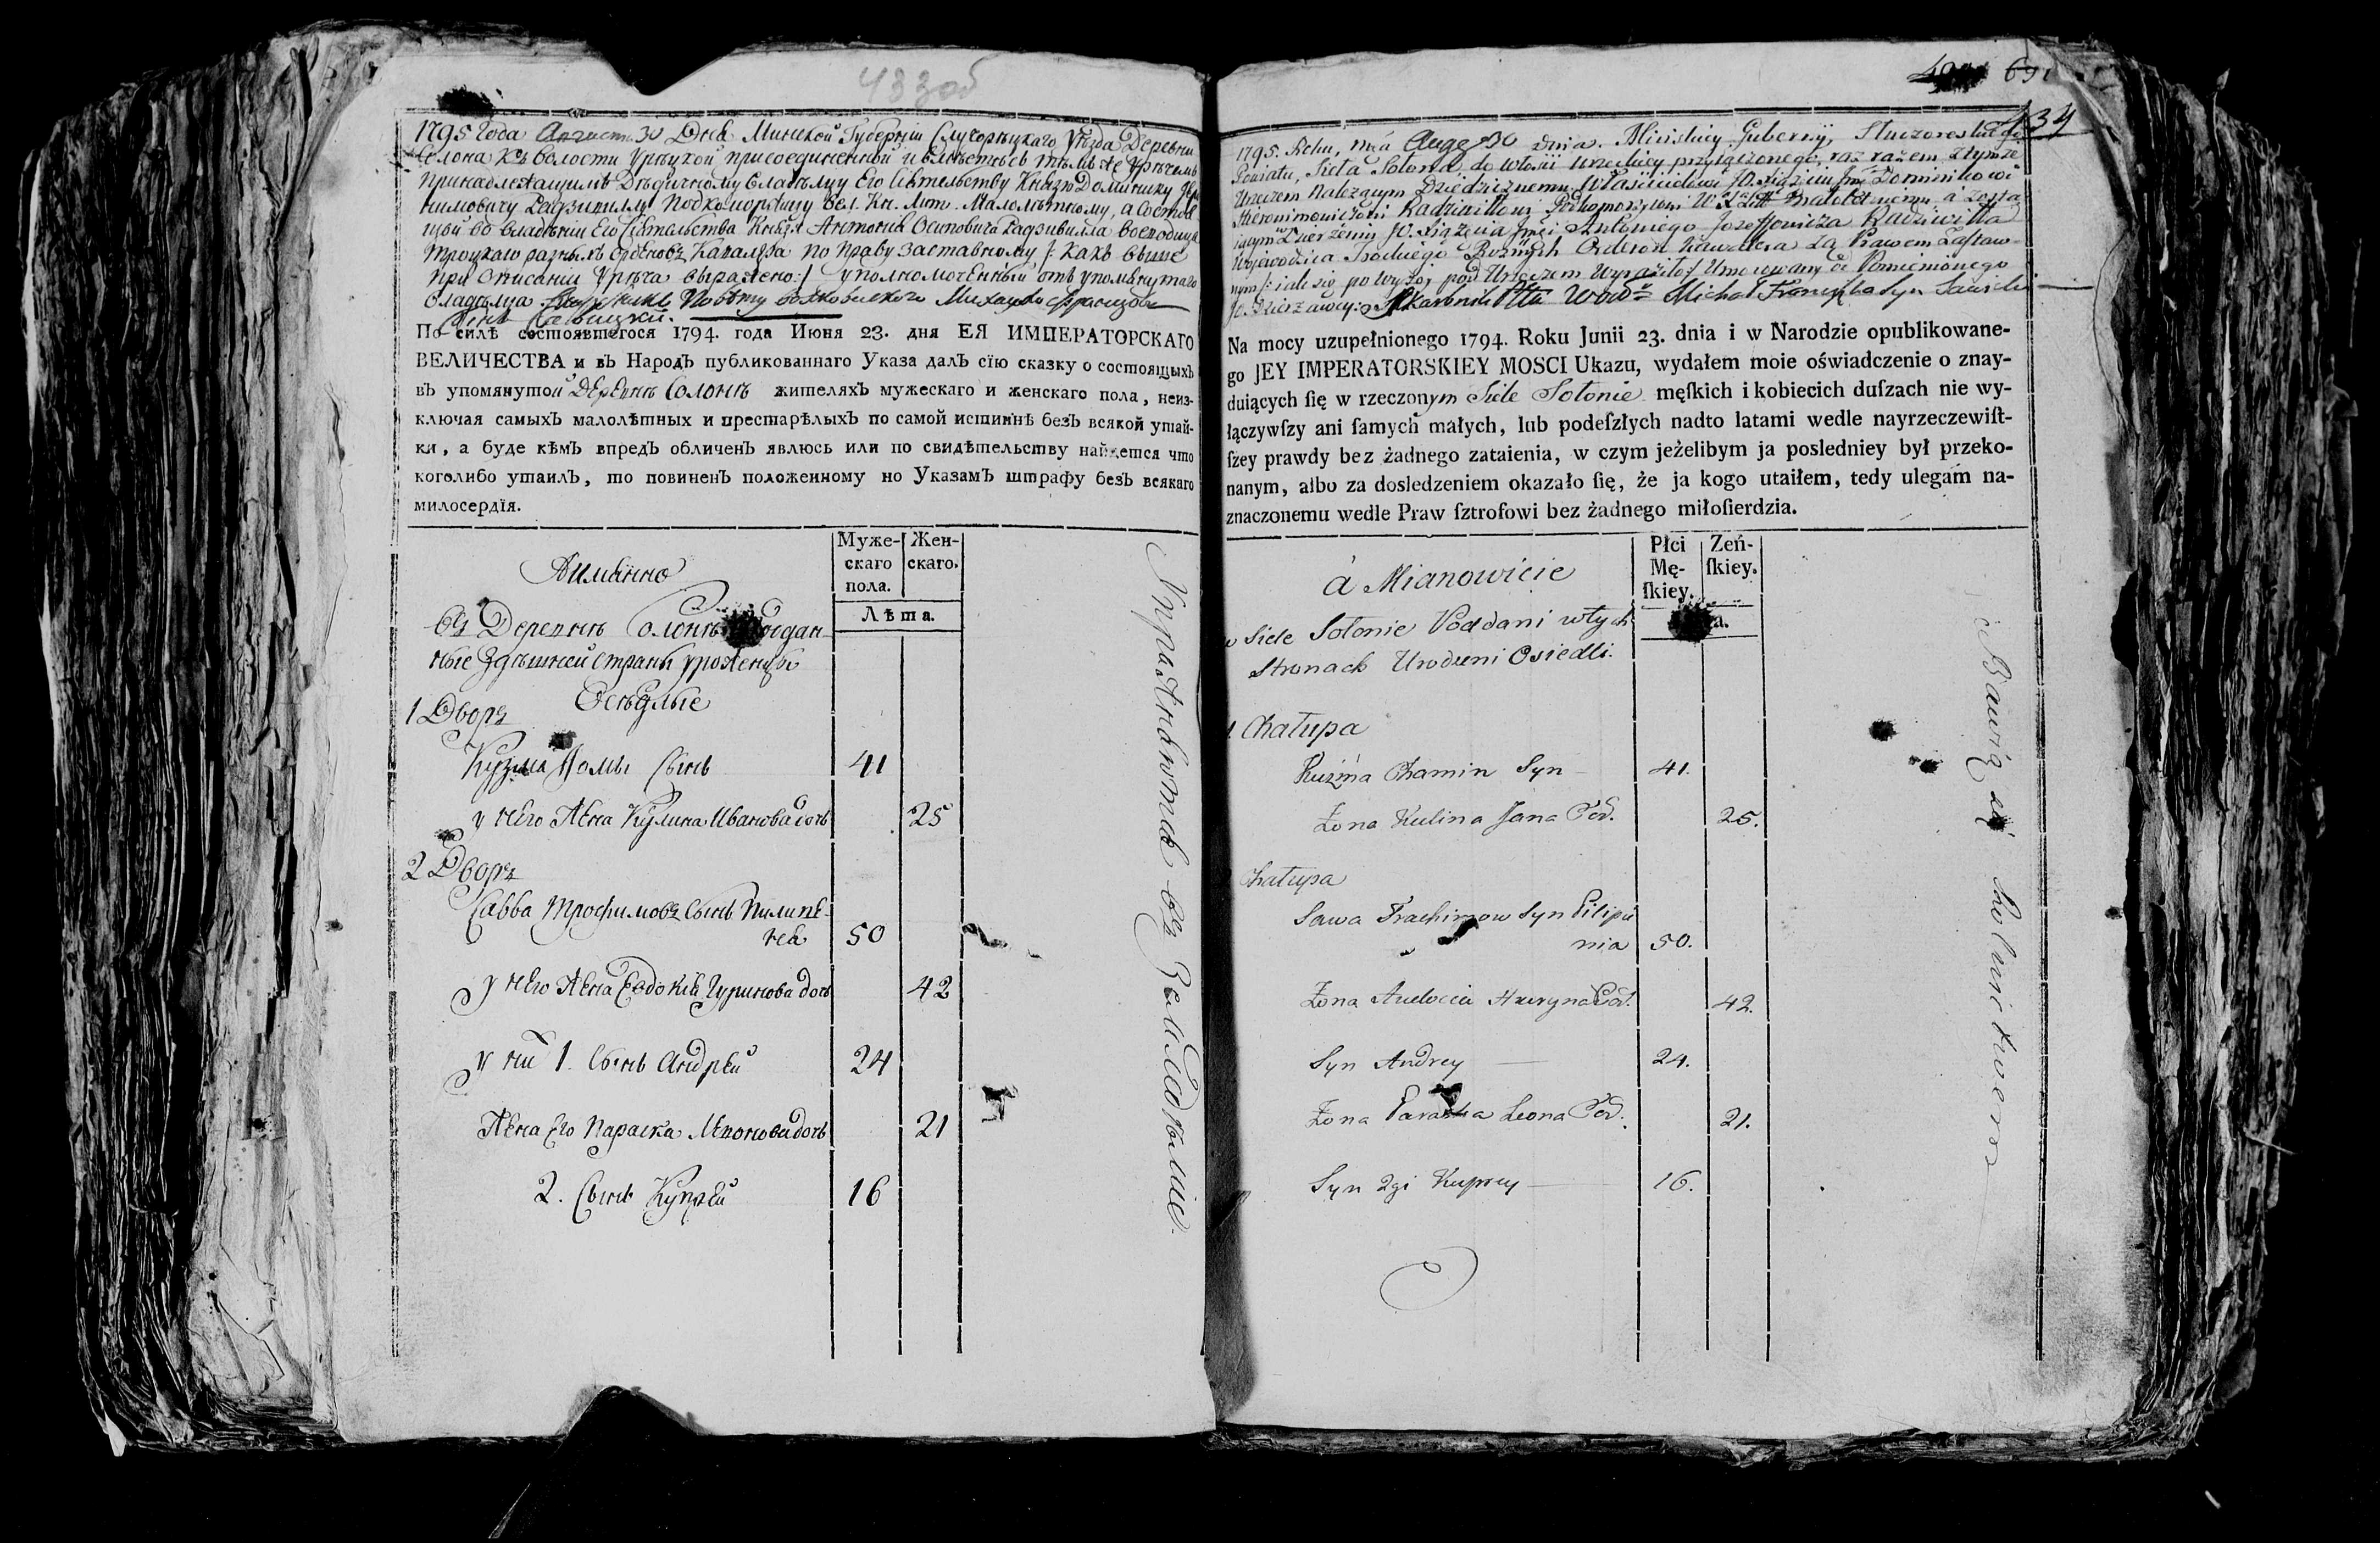 433об
1795 Года Августа 30 Дня Минской Губерніи Случорѣцкаго Уѣзда Деревни
Солона къ волости Урѣцкой присоединенной и вмѣстѣ съ тѣмъ же Урѣчемъ
принадлежащимъ Дѣдичному владѣлцу Его Сіятельству Князю Доминику
нимовичу Радзивиллу Подкоморжицу вел. Кн. Лит. Малолѣтному, а состоя
щей во владѣніи Его Сіятельства Князя Антонія Осиповича Радзивилла воеводица
Троцкаго разныхъ орденовъ Кавалера по праву заставному /: какъ выше
при описаніи Урѣча выражено :/ уполномоченный отъ упомянутаго
владѣлца Михайло Францов
сынъ Савицкій.
По силѣ состоявшегося 1794. года Июня 23. дня ЕЯ ИМПЕРАТОРСКАГО
ВЕЛИЧЕСТВА и вЪ НародЪ публикованнаго Указа далЪ сїю сказку о состоящыхЪ
вЪ упомянутой Деревнѣ Солонѣ жителяхЪ мужескаго и женскаго пола, неиз-
ключая самыхЪ малолѣтных и престарѣлыхЪ по самой истиннѣ безЪ всякой утай-
ки, а буде кѣмЪ впредЪ обличенЪ явлюсь или по свидѣтельству найдется что
коголибо утаилЪ, то повиненЪ положенному но УказамЪ штрафу безЪ всякаго
милосердїя.
Муже-
скаго
пола.
Жен-
скаго.
Лѣта.
А имянно
Въ Деревнѣ Солонѣ
ные здѣшней страны уроженцы
Осѣдлые
1 Дворъ
Кузма Хомы Сынъ 41
у него Жена Кулина Иванова дочь 25
2 Дворъ
Савва Трофимовъ Сынъ Пилипе-
ня 50
у него Жена Евдокія Гуринова дочь 42
у ній 1. Сынъ Андрей 24
Жена Его Параска Леонова дочь 21
2. Сынъ Купрей 16
Упражняютсѧ въ Земледѣліе.
691
434
1795. Roku, m-ca Auge 30 dnia. Minskiey Gubernij, Sluczoreckiego
Powiatu, Sieła Sołona, do Włości Urzeckiey przyłączonego, raz razem z tymże
Urzeczem należącym Dziedzicznemu Właścicielowi JO. Xiążęciu Jmci Dominikowi
Hieronimowiczowi Radziwiłłowi Podkomorzycowi W X Litt Małoletniemu a zosta
iącym w Dzierżeniu JO. Xiążęcia Jmci Antoniego Jozeffowicza Radziwiłła
Wojewodzica Trockiego Roznych Orderow Kawalera za Prawem Zastaw-
nym /: iak się powyżej pod Urzeczem wyraziło :/ Umocowany od Pomienionego
JO. Dzierzawcy Michał Franciszka Syn Sawicki
Na mocy uzupełnionego 1794. Roku Junii 23. dnia i w Narodzie opublikowane-
go JEY IMPERATORSKIEY MOSCI Ukazu, wydałem moie oświadczenie o znay-
duiących ſię w rzeczonym Siele Sołonie męſkich i kobiecich duſzach nie wy-
łączywſzy ani ſamych małych, lub podeſzłych nadto latami wedle nayrzeczewiſt-
ſzey prawdy bez żadnego zataienia, w czym jeżelibym ja posledniey był przeko-
nanym, albo za dosledzeniem okazało ſię, że ja kogo utaiłem, tedy ulegam na-
znaczonemu wedle Praw ſztrofowi bez żadnego miłoſierdzia.
Płci
Mę-
ſkiey.
Zeń-
ſkiey.
a.
à Mianowicie
w Siele Sołonie Poddani w tych
Stronach Urodzeni Osiedli.
1 Chałupa
Kuźma Chamin Syn 41.
Żona Kulina Jana Cor. 25.
Chałupa
Sawa Trachimow Syn Pilipie
nia 50.
Żona Audocia Huryna Cor. 42.
Syn Andrey 24.
Żona Paraska Leona Cor. 21.
Syn 2gi Kuprey 16.
Bawią się Rolnictwem